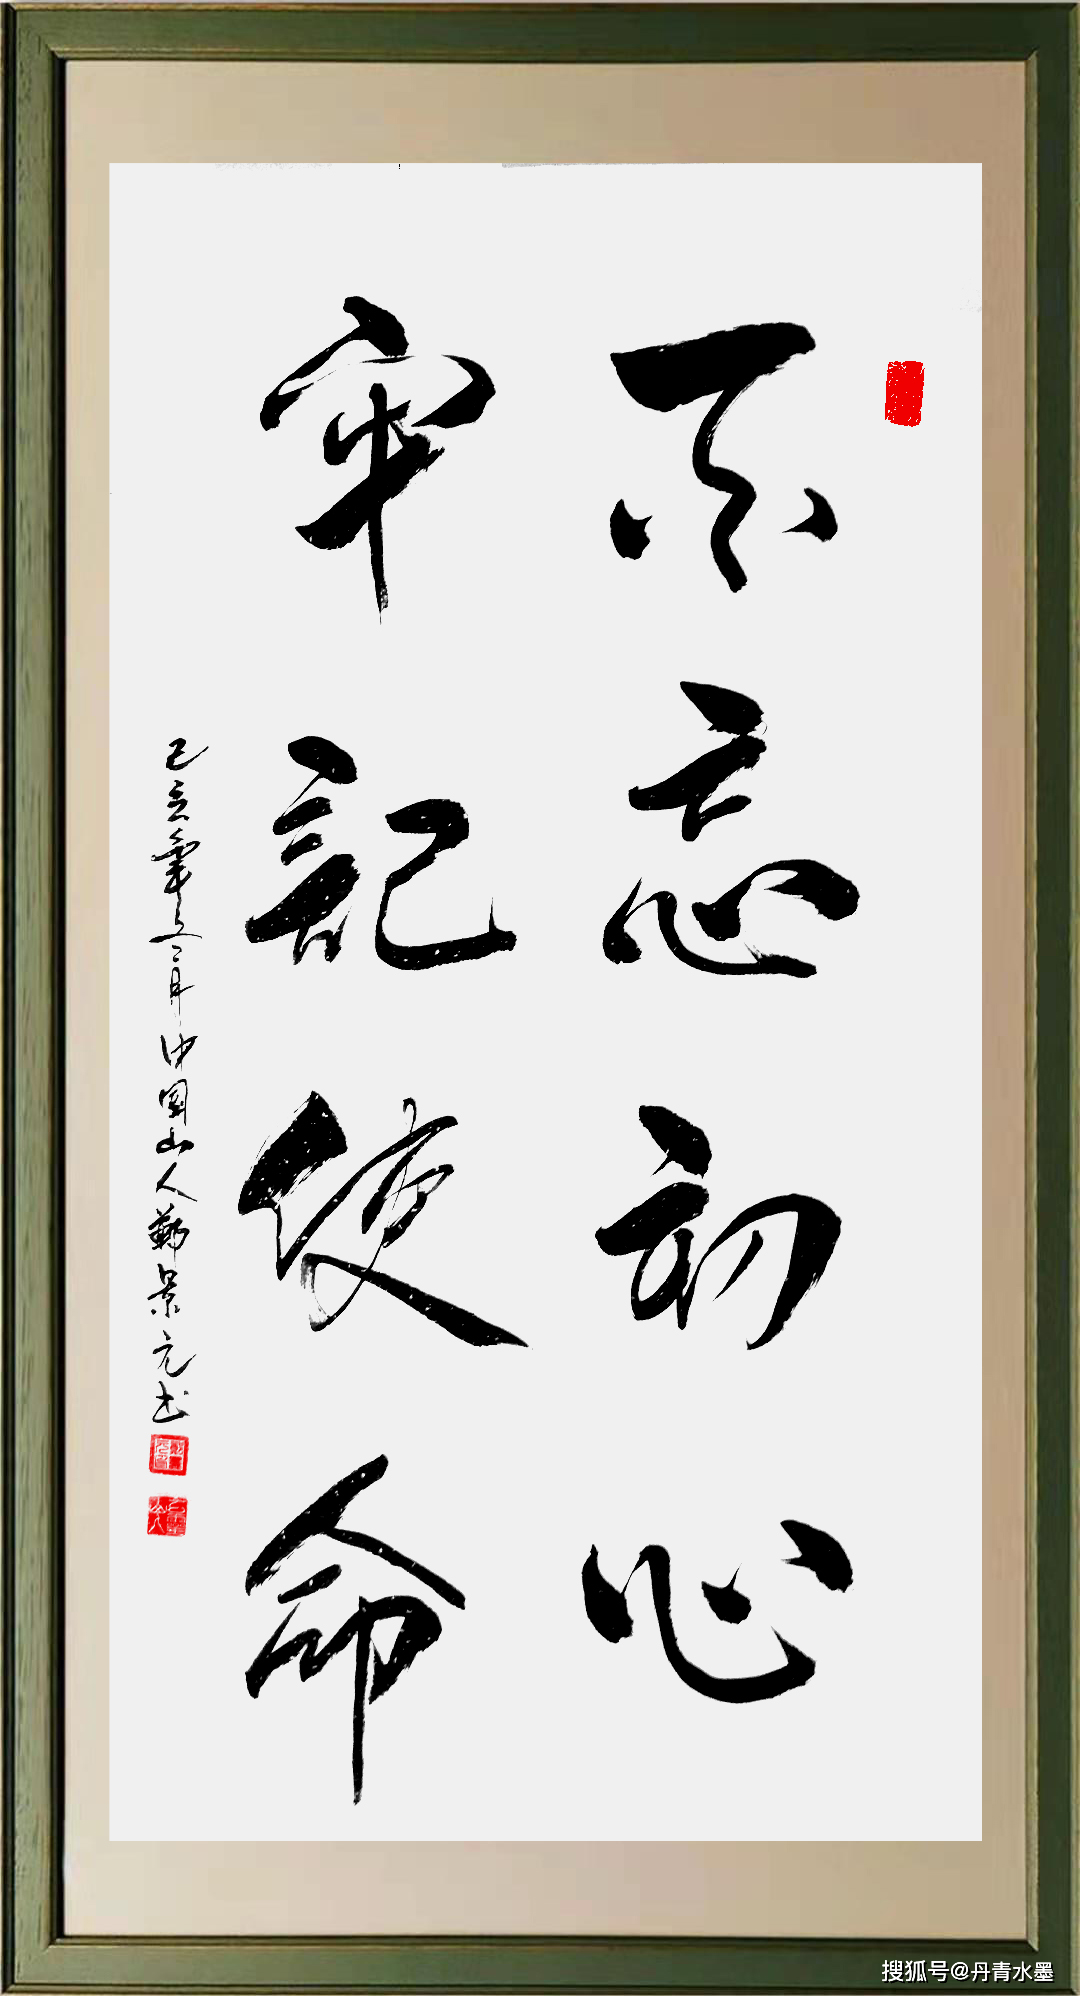 不忘初心
牢記使命
己亥年冬月中國山人景元书
搜狐号@丹青水墨